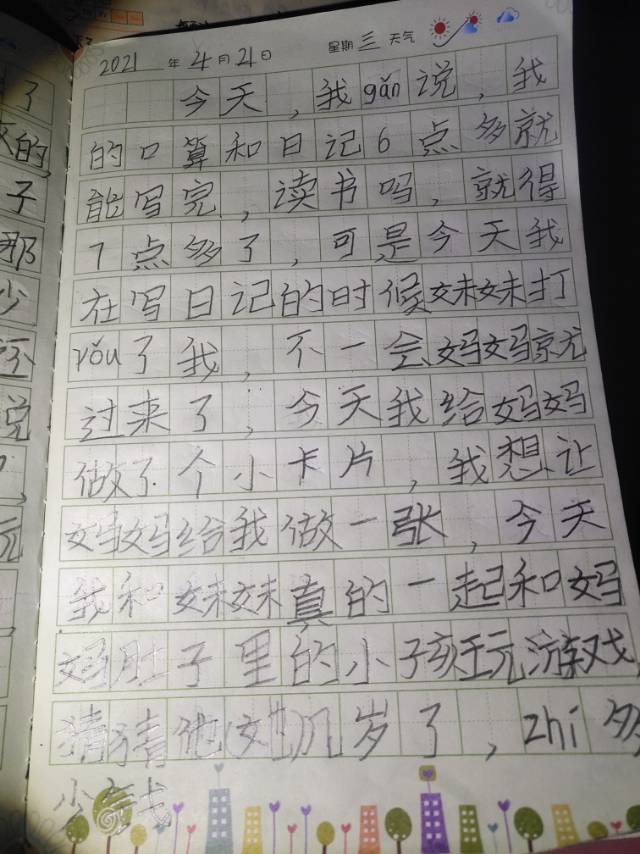 2021 年 4 月 21 日 星期 三 天气
今天,我gǎn说,我
的口算和日记6点多就
能写完,读书吗,就得
7点多了,可是今天我
在写日记的时候妹妹打
rǒu了我,不一会妈妈就
过来了,今天我给妈妈
做了个小卡片,我想让
妈妈给我做一张,今天
我和妹妹真的一起和妈
妈肚子里的小孩玩游戏,
猜猜他(她)几岁了,zhí多
少钱